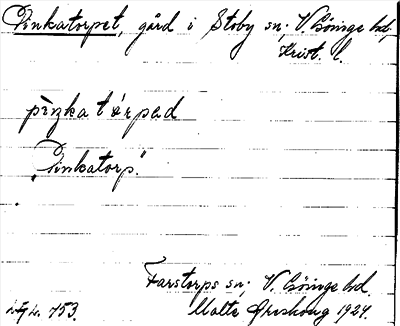 Pinkatorpet, gård i Stoby sn; V. Göinge hd,
Krist. l.
pìŋkatɷrpəd
„Pinkatorp.”
Farstorps sn; V. Göinge hd
753. Malte 1924.